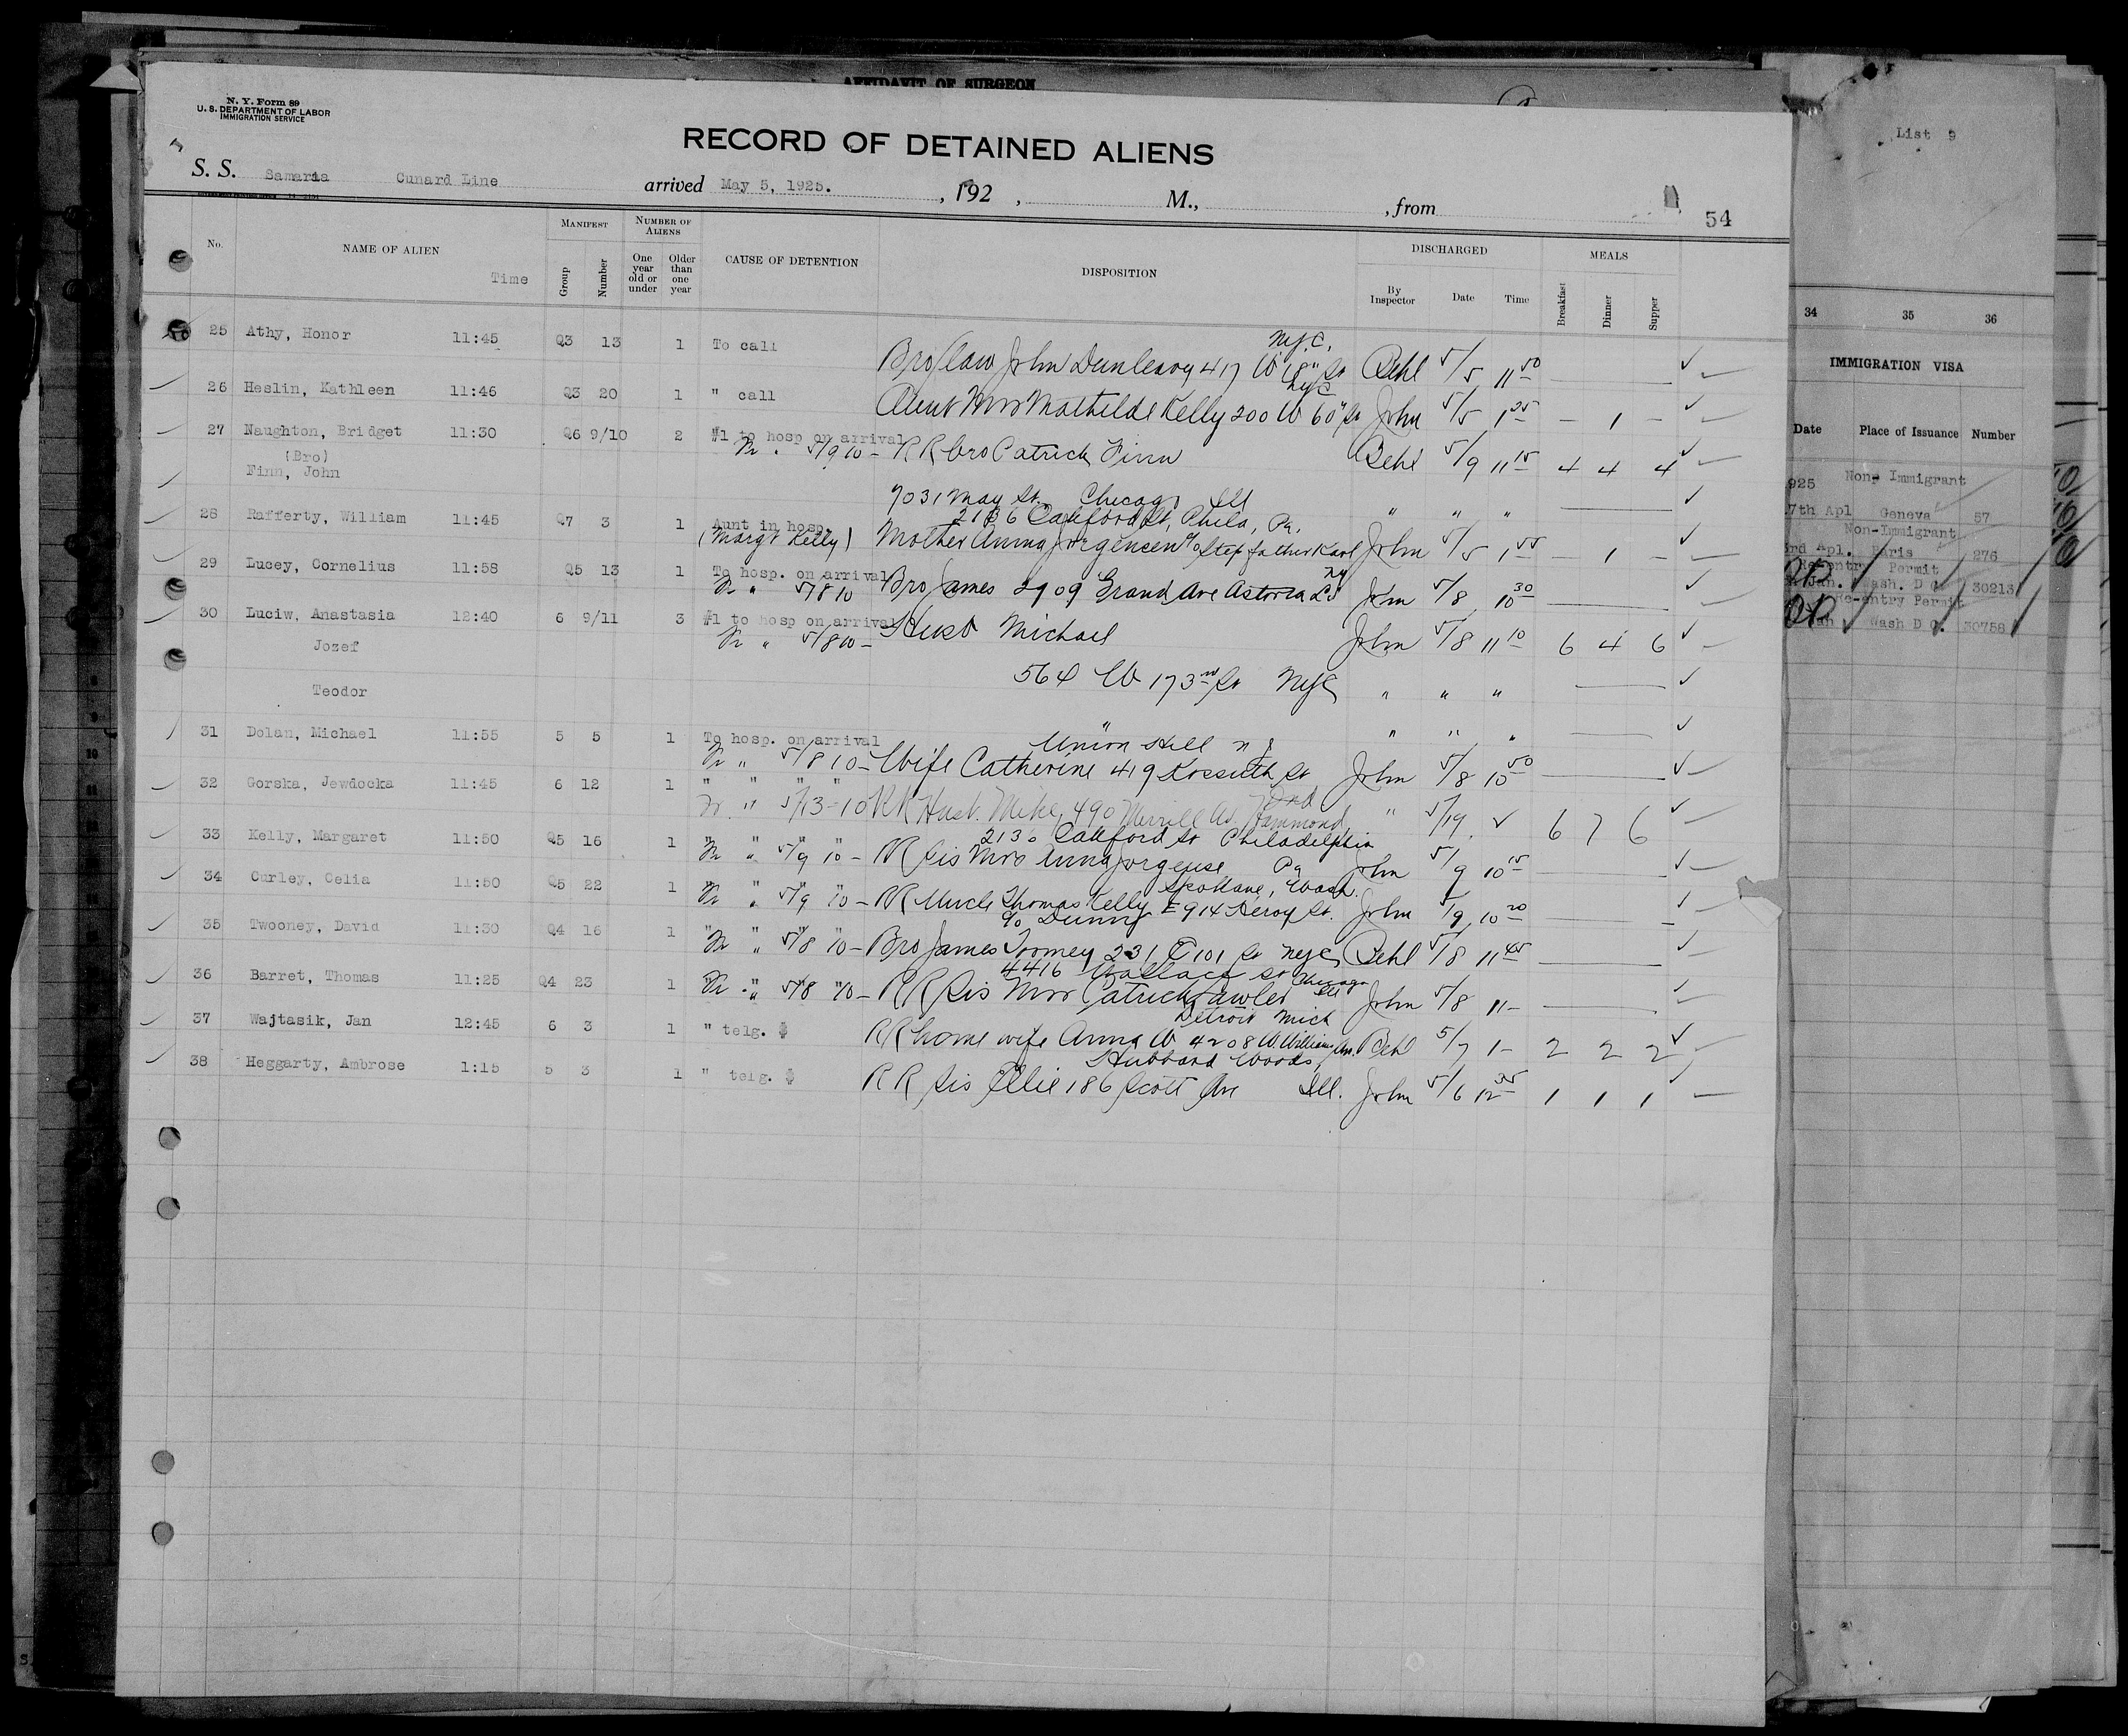 AFFIDAVIT OF SURGEON
N. Y. Form 89
U. S. DEPARTMENT OF LABOR
IMMIGRATION SERVICE
RECORD OF DETAINED ALIENS
S. S. Samaria Cunard Line arrived May 5, 1925. , 192 , M., , from
54
No. NAME OF ALIEN Time MANIFEST Group Number NUMBER OF ALIENS One year old or under Older than one year CAUSE OF DETENTION DISPOSITION DISCHARGED By Inspector Date Time MEALS Breakfast Dinner Supper
NyC,
25 Athy, Honor 11:45 Q3 13 1 To call Bro/law John Dunleavy 417 W 18" St Behl 5/5 11 50
NyC
26 Heslin, Kathleen 11:46 Q3 20 1 " call Aunt Mrs Mathilde Kelly 200 W 60" St John 5/5 1 25 – 1 –
27 Naughton, Bridget 11:30 Q6 9/10 2 #1 to hosp on arrival
5/9 10 – RR bro Patrick Finn Behl 5/9 11 15 4 4 4
(Bro)
Finn, John 7031 May St. Chicago Ill " " "
2136 Oakford St, Phila, Pa.
28 Rafferty, William 11:45 Q7 3 1 Aunt in hosp.
(Margt Kelly) Mother Anna Jorgencen c/o Step father Karl John 5/5 1 55 – 1 –
29 Lucey, Cornelius 11:58 Q5 13 1 To hosp. on arrival
" 5/8 10 Bro James 2909 Grand Ave Astoria LI NY John 5/8 10 30
30 Luciw, Anastasia 12:40 6 9/11 3 #1 to hosp on arrival
" 5/8 10 – Husb Michael John 5/8 11 10 6 4 6
Jozef 564 W 173rd St NyC " " "
Teodor " " " "
31 Dolan, Michael 11:55 5 5 1 To hosp. on arrival Union Hill N J
" 5/8 10 – Wife Catherine 419 Kossuth St John 5/8 10 50
32 Gorska, Jewdocka 11:45 6 12 1 " " " "
" 5/13 – 10 RR Husb. Mike, 490 Merrill Av. Hammond, Ind " 5/19 6 7 6
33 Kelly, Margaret 11:50 Q5 16 1 " " " " 2136 Oakford St Philadelphia
" 5/9 10 – RR Sis Mrs Anna Jorgense Pa John 5/9 10 15
34 Curley, Celia 11:50 Q5 22 1 " " " " Spokane, Wash.
" 5/9 10 – RR Uncle Thomas Kelly E 914 Heroy St. John 5/9 10 20
35 Twooney, David 11:30 Q4 16 1 " " " " c/o Dunny
" 5/8 10 – Bro James Toomey 231 E 101 St NyC Behl 5/8 11 45
36 Barret, Thomas 11:25 Q4 23 1 " " " " 4416 Wallace St Chicago
" 5/8 10 – RR Sis Mrs Patrick Lawler Ill John 5/8 11 –
Detroit Mich
37 Wajtasik, Jan 12:45 6 3 1 " telg. $ RR home wife Anna W 4208 W Williams Av. Behl 5/7 1 – 2 2 2
Hubbard Woods,
38 Heggarty, Ambrose 1:15 5 3 1 " telg. $ RR Sis Ellie 186 Scott Ave Ill. John 5/6 12 35 1 1 1
List 9
34 35 36
IMMIGRATION VISA
Date Place of Issuance Number
1925 Non- Immigrant
7th Apl Geneva 57
Non-Immigrant
3rd Apl. Paris 276
Re-entry Permit
Jan. Wash. D C. 30213
Re-entry Permit
Jan Wash D C. 30758